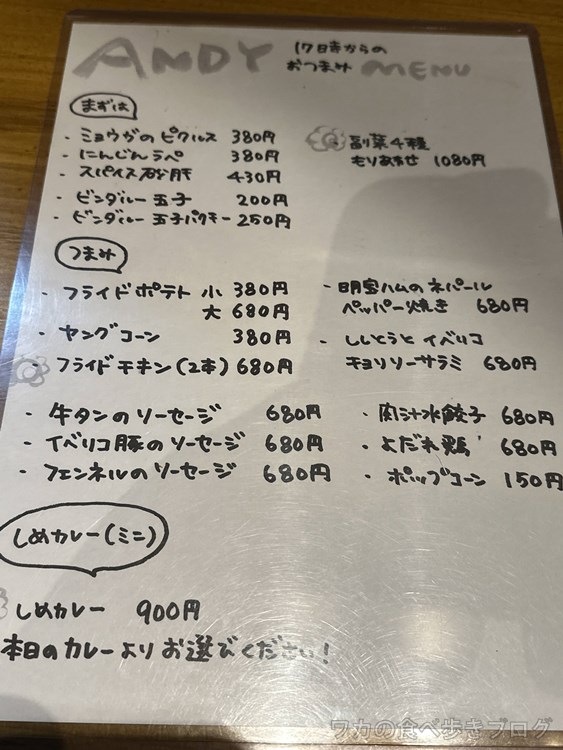 ANDY 17時からの
おつまみ MENU
まずは
・ミョウガのピクルス 380円
・にんじんラペ 380円
・スパイス砂肝 430円
・ビンダルー玉子 200円
・ビンダルー玉子パクチー 250円
副菜4種
もりあわせ 1080円
つまみ
・フライドポテト 小 380円
大 680円
・ヤングコーン 380円
・フライドチキン(2本) 680円
・明宝ハムのネパール
ペッパー焼き 680円
・ししとうとイベリコ
チョリソーサラミ 680円
・牛タンのソーセージ 680円
・イベリコ豚のソーセージ 680円
・フェンネルのソーセージ 680円
・肉汁水餃子 680円
・よだれ鶏 680円
・ポップコーン 150円
しめカレー(ミニ)
しめカレー 900円
本日のカレーよりお選びください!
ワカの食べ歩きブログ